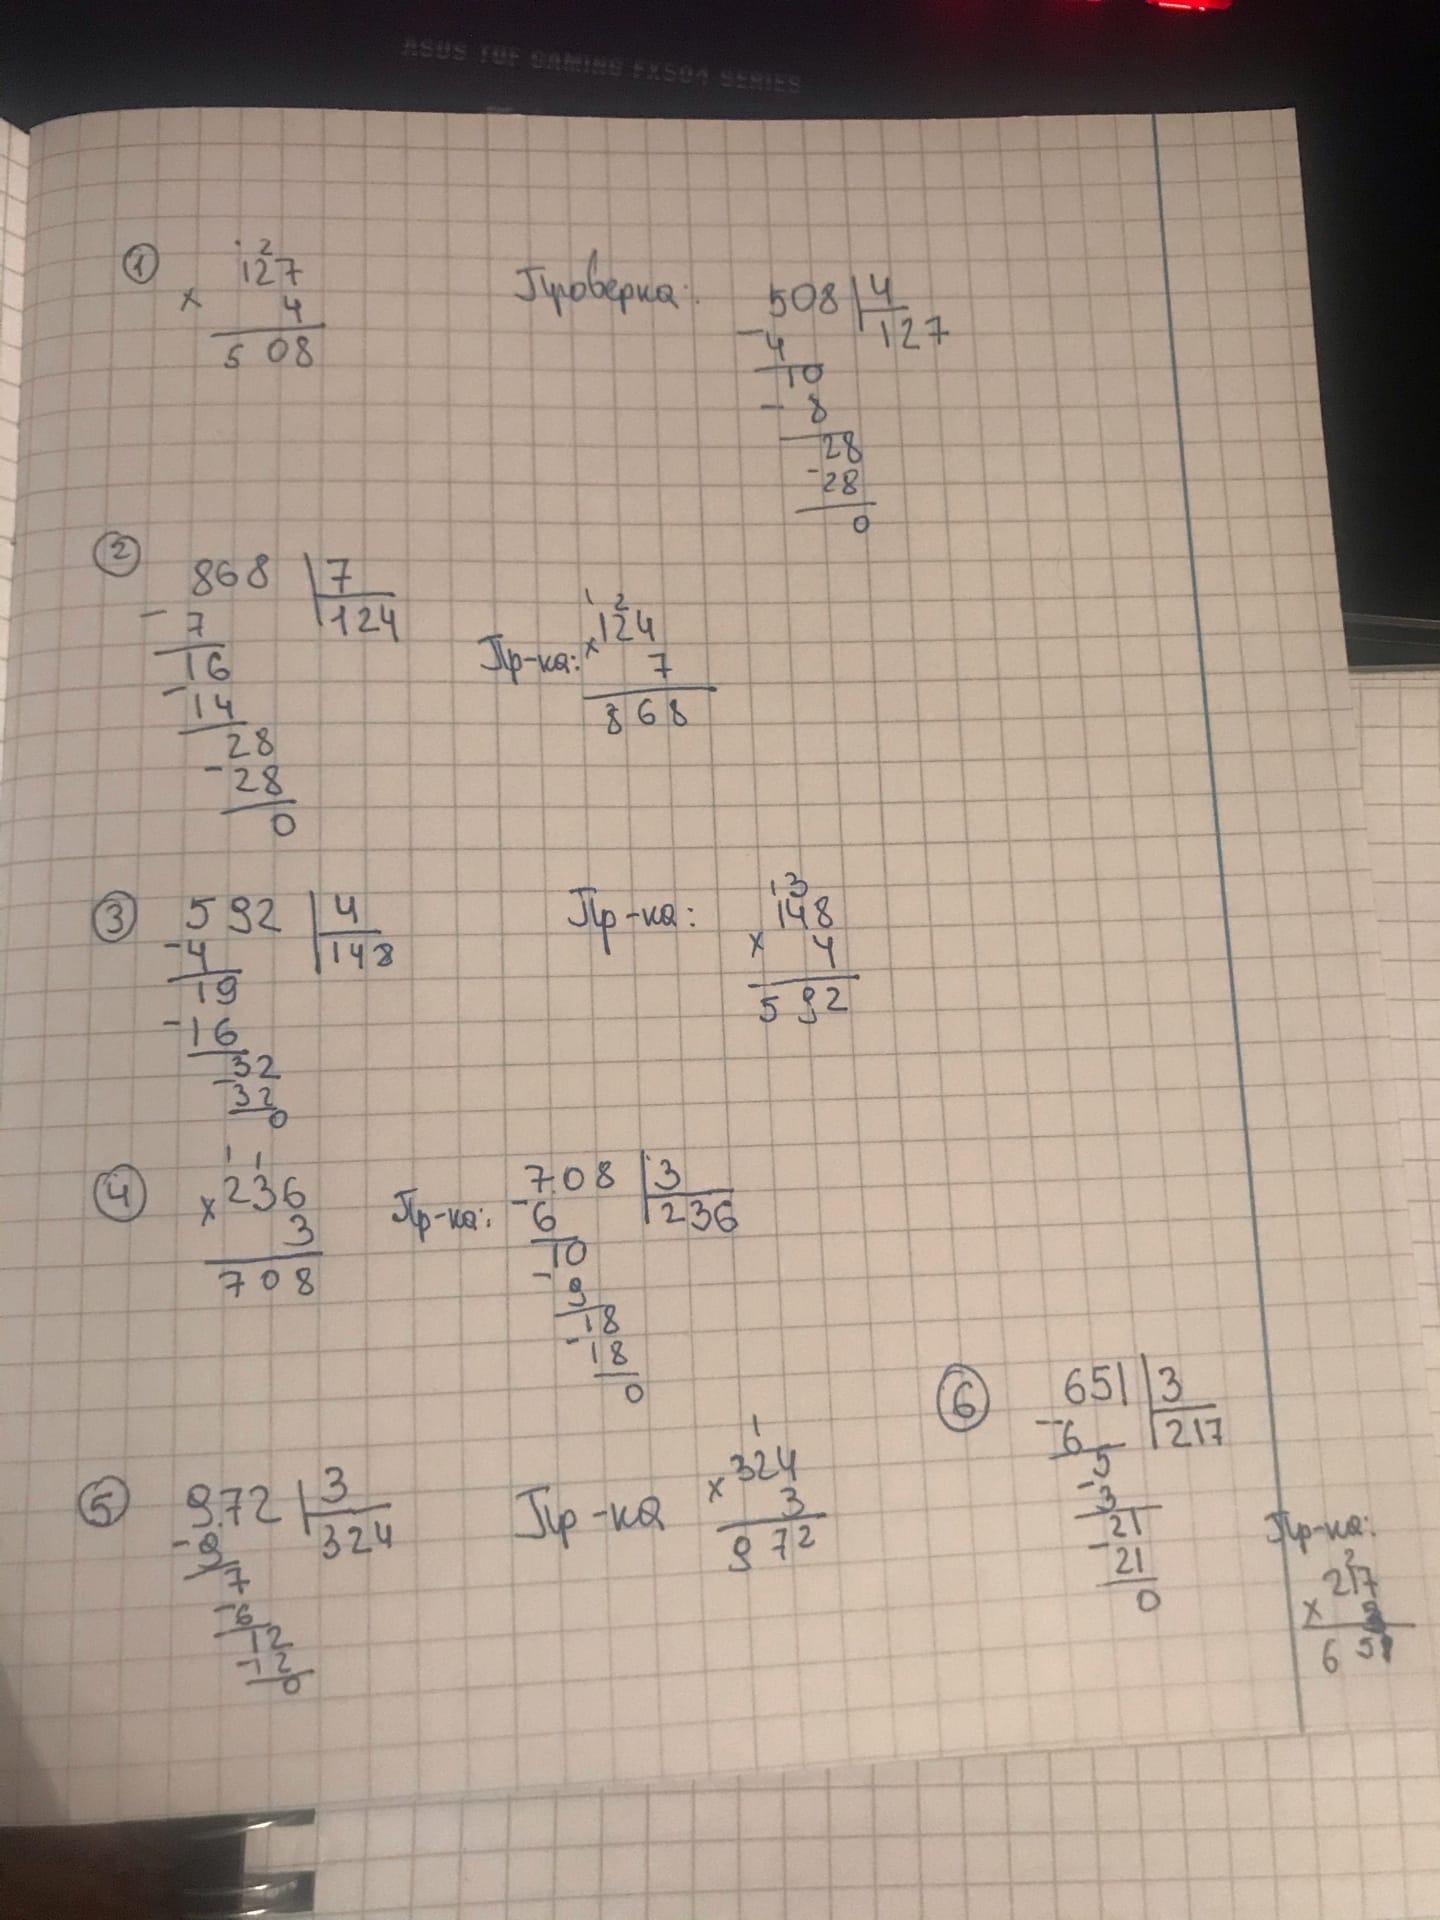 ASUS TUF GAMING FX504 SERIES
① 127
× 4
508
Проверка: 508 | 4
127
- 4
10
- 8
28
- 28
0
② 868 | 7
124
- 7
16
- 14
28
- 28
0
Пр-ка: 1 2
× 124
7
868
③ 592 | 4
148
- 4
19
- 16
32
- 32
0
Пр-ка: 1 3
148
× 4
592
④ 1 1
× 236
3
708
Пр-ка: 708 | 3
236
- 6
10
- 9
18
- 18
0
⑤ 972 | 3
324
- 9
7
- 6
12
- 12
0
Пр-ка 1
× 324
3
972
⑥ 651 | 3
217
- 6
5
- 3
21
- 21
0
Пр-ка:
2
217
× 3
651